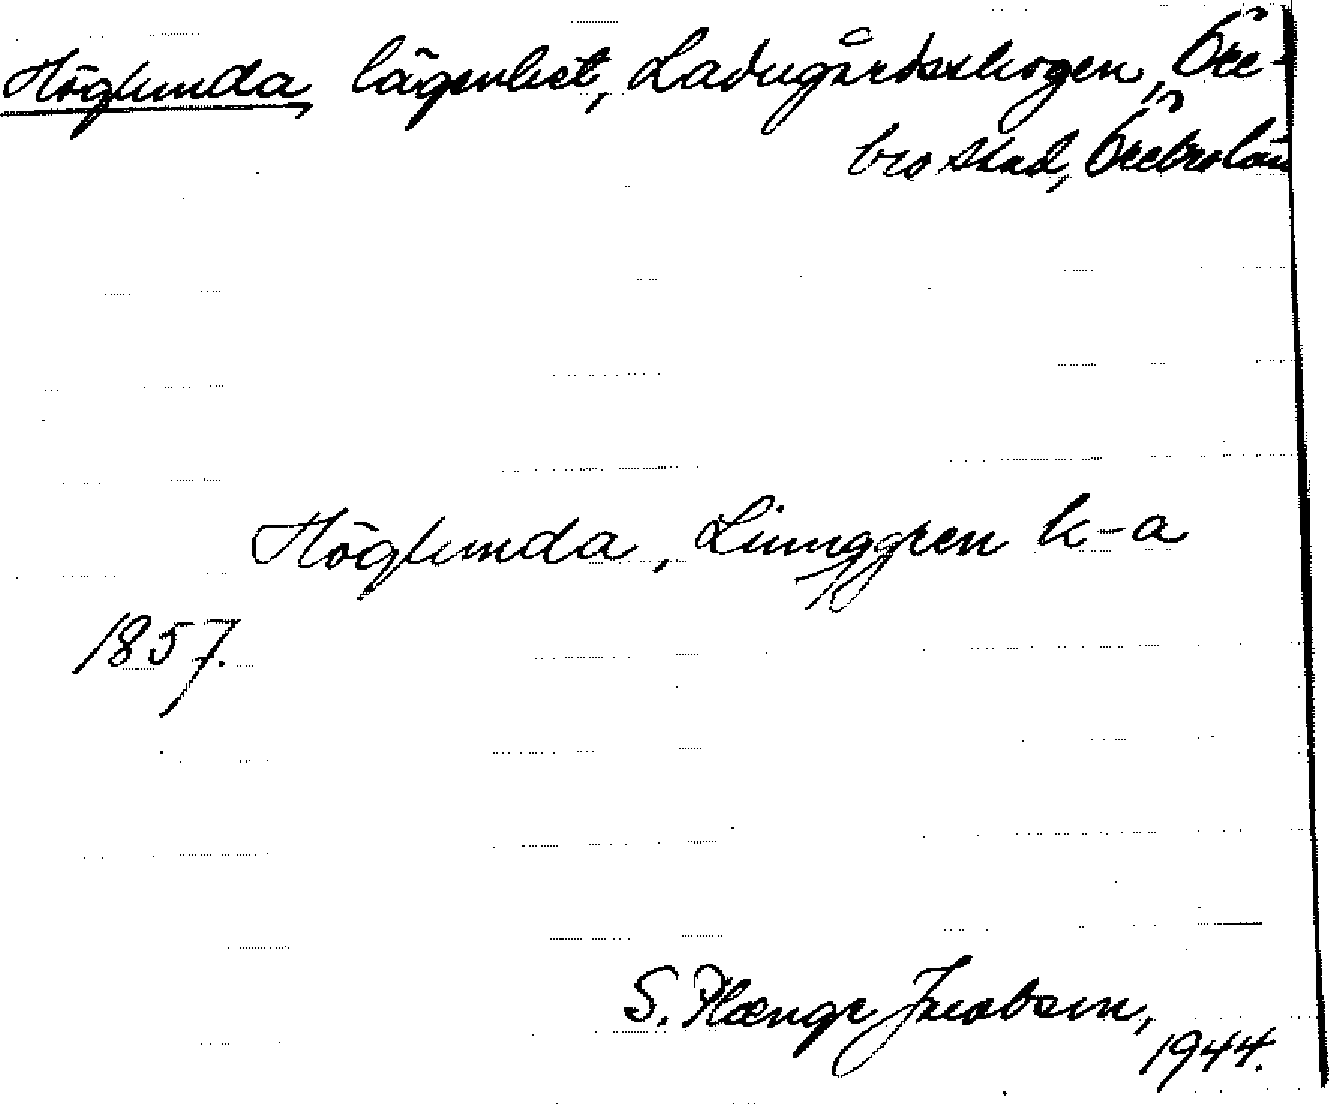 Höglunda, lägenhet, Ladugårdsskogen, Öre-
bro stad, Örebro län
Höglunda, Ljunggren k-a
1857.
S. Plænge Jacobsen,
1944.